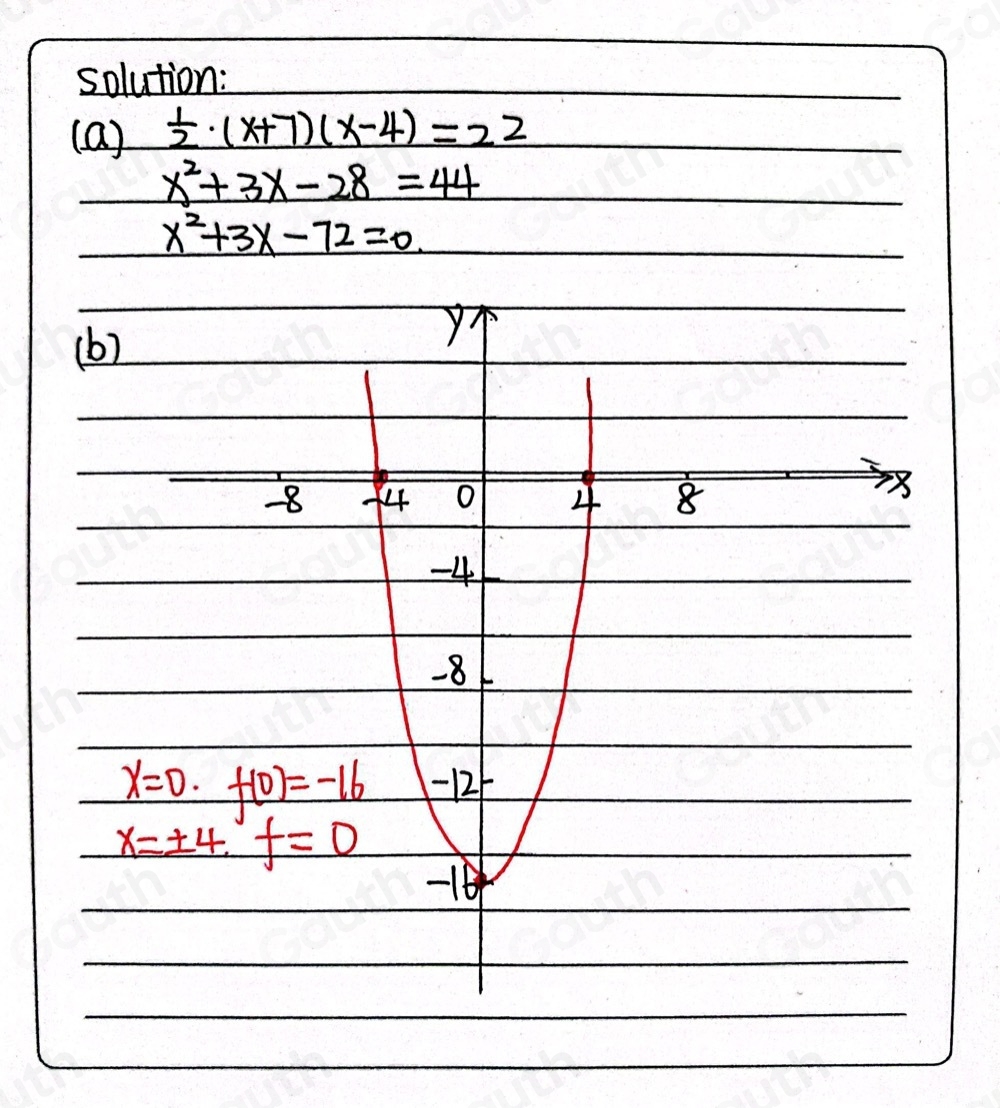 Solution:
(a) 1/2 ·(x+7)(x-4) = 22
x²+3x-28 = 44
x²+3x-72=0.
(b)
y
-8 -4 0 4 8 x
-4
-8
-12
-16
x=0. f(0)=-16
x=±4. f=0
Gauth